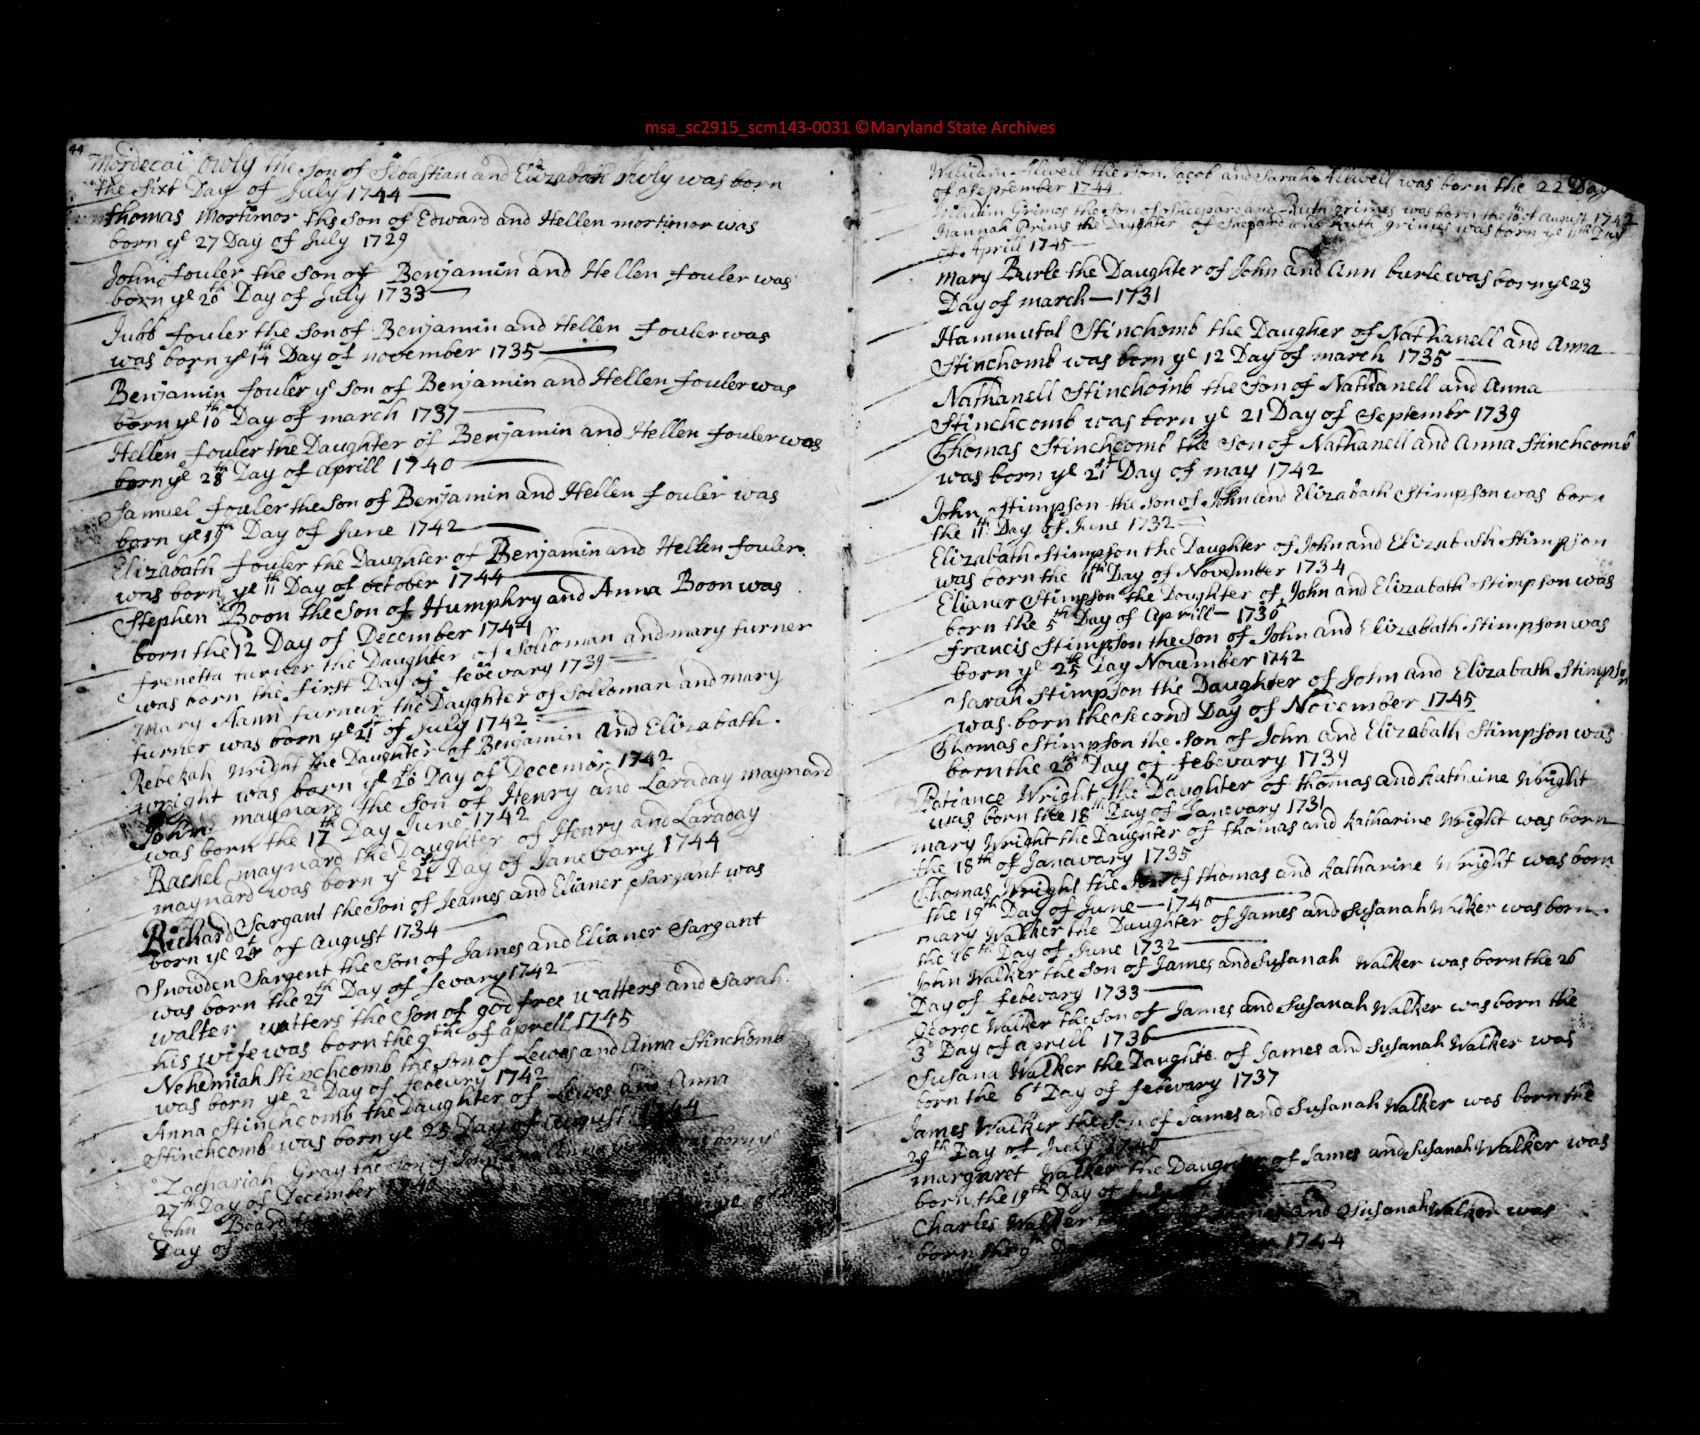 msa_sc2915_scm143-0031 ©Maryland State Archives
44
Mordecai the Son of Sebastian and Elizabath was born
the Sixt Day of July 1744
Thomas Mortimor the Son of Edward and Hellen mortimor was
born ye 27 Day of July 1729
John fouler the Son of Benjamin and Hellen fouler was
born ye 20th Day of July 1733
Jubb fouler the Son of Benjamin and Hellen fouler was
was born ye 14th Day of november 1735
Benjamin fouler ye Son of Benjamin and Hellen fouler was
born ye 10th Day of march 1737
Hellen fouler the Daughter of Benjamin and Hellen fouler was
born ye 28th Day of aprill 1740
Samuel fouler the Son of Benjamin and Hellen fouler was
born ye 19th Day of June 1742
Elizabath fouler the Daughter of Benjamin and Hellen fouler
was born ye 11th Day of october 1744
Stephen Boon the Son of Humphry and Anna Boon was
born the 12 Day of December 1744
frenetta turner the Daughter of Solloman and mary turner
was born the first Day of febevary 1739
Mary Hann turner the Daughter of Solloman and mary
turner was born ye 21st of July 1742
Rebekah Wright the Daughter of Benjamin and Elizabath
wright was born ye Day of Decembr 1742
John maynard the Son of Henry and Laraday maynard
was born the 17th Day June 1742
Rachel maynard the Daughter of Henry and Laraday
maynard was born ye 21st Day of Janevary 1744
Richard Sargant the Son of Jeames and Elianer Sargant was
born ye of August 1734
Snowden Sargent the Son of James and Elianer Sargant
was born the 27th Day of fevary 1742
walter watters the Son of godfree watters and Sarah
his wife was born the 9the of aprell 1745
Nehemiah Stinchcomb the Son of Lewes and Anna Stinchomb
was born ye 2d Day of febeury 1742
Anna Stinchcomb the Daughter of Lewes and Anna
Stinchcomb was born ye 23 Day of August 1744
Zachariah Gray the Son of John and Anna was born ye
27th Day of December
John Beard
Day of
William Allwell the Son Jacob and Sarah Allwell was born the 22 Day
of September 1744
William Grimes the Son of Sheepard and Ruth grimes was born the 10th of August 1742
Hannah Grims the Daughter of Shepard and Ruth grimes was born ye 11th Day
of Aprill 1745
Mary Burle the Daughter of John and Ann burle was born ye 23
Day of march 1731
Hammutal Stinchomb the Daugher of Nathanell and Anna
Stinchomb was born ye 12 Day of march 1735
Nathanell Stinchcimb the Son of Nathanell and Anna
Stinchcomb was born ye 21 Day of Septembr 1739
Thomas Stinchcomb the Son of Nathanell and Anna Stinchcomb
was born ye 21st Day of may 1742
John Stimpson the Son of John and Elizabath Stimpson was born
the 11th Day of June 1732
Elizabath Stimpson the Daughter of John and Elizabath Stimpson
was born the 11th Day of November 1734
Elianer Stimpson the Daughter of John and Elizabath Stimpson was
born the 5th Day of Aprill 1736
francis Stimpson the Son of John and Elizabath Stimpson was
born ye 25th Day November 1742
Sarah Stimpson the Daughter of John and Elizabath Stimpson
was born the Second Day of November 1745
Thomas Stimpson the Son of John and Elizabath Stimpson was
born the 20th Day of febevary 1739
Patiance Wright the Daughter of thomas and kathaine Wright
was born the 18th Day of Janevary 1731
mary Wright the Daughter of thomas and katharine Wright was born
the 18th of Janavary 1735
Thomas Wright the Son of thomas and katharine Wright was born
the 19th Day of June 1740
mary Walker the Daughter of James and Susanah Walker was born
the 16th Day of June 1732
John Walker the Son of James and Susanah Walker was born the 26
Day of febevary 1733
George Walker the Son of James and Susanah Walker was born the
3d Day of aprill 1736
Susana Walker the Daughte of James and Susanah Walker was
born the 6t Day of febevary 1737
James Walker the Son of James and Susanah Walker was born the
29th Day of July 1740
margaret Walker the Daughter of James and Susanah Walker was
born the 19th Day of July
Charles Walker James and Susanah Walker was
born the 9 1744